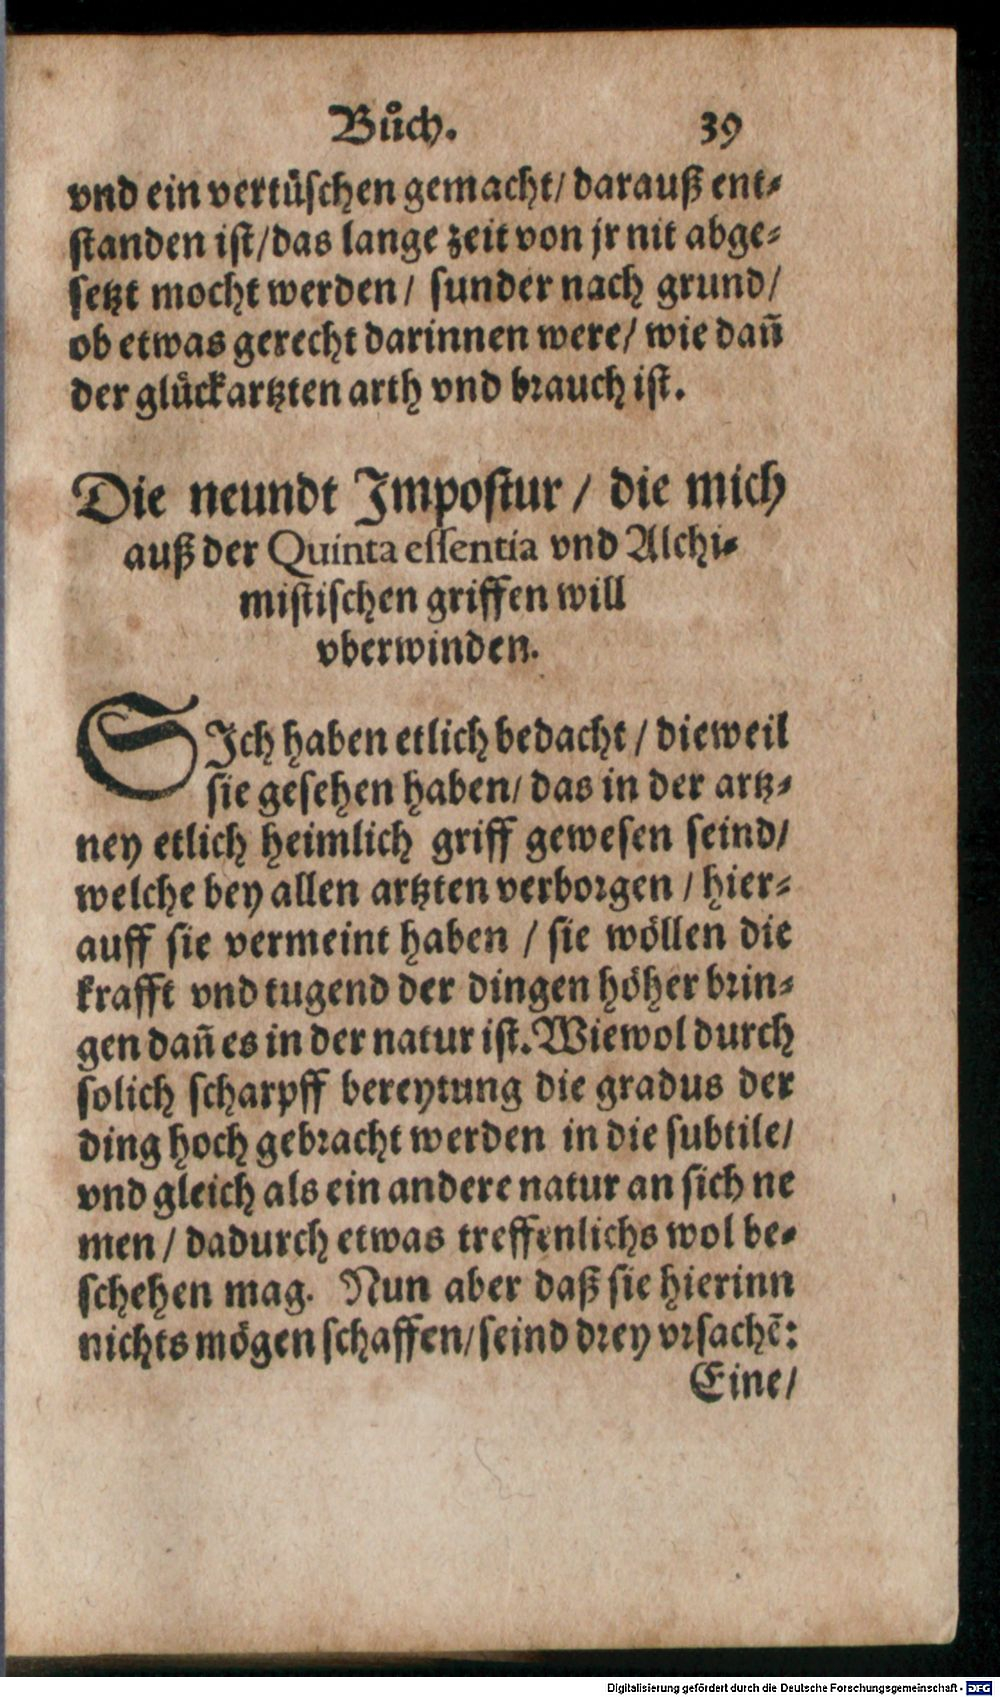 Bůch. 39
vnd ein vertüschen gemacht/ darauß ent-
standen ist/ das lange zeit von jr nit abge-
setzt mocht werden/ sunder nach grund/
ob etwas gerecht darinnen were/ wie dañ
der glückartzten arth vnd brauch ist.
Die neundt Impostur / die mich
auß der Quinta essentia vnd Alchi-
mistischen griffen will
vberwinden.
SIch haben etlich bedacht / dieweil
sie gesehen haben/ das in der artz-
ney etlich heimlich griff gewesen seind/
welche bey allen artzten verborgen / hier-
auff sie vermeint haben / sie wöllen die
krafft vnd tugend der dingen höher brin-
gen dañ es in der natur ist. Wiewol durch
solich scharpff bereytung die gradus der
ding hoch gebracht werden in die subtile/
vnd gleich als ein andere natur an sich ne
men / dadurch etwas treffenlichs wol be-
schehen mag. Nun aber daß sie hierinn
nichts mögen schaffen/ seind drey vrsachẽ:
Eine/
Digitalisierung gefördert durch die Deutsche Forschungsgemeinschaft - DFG